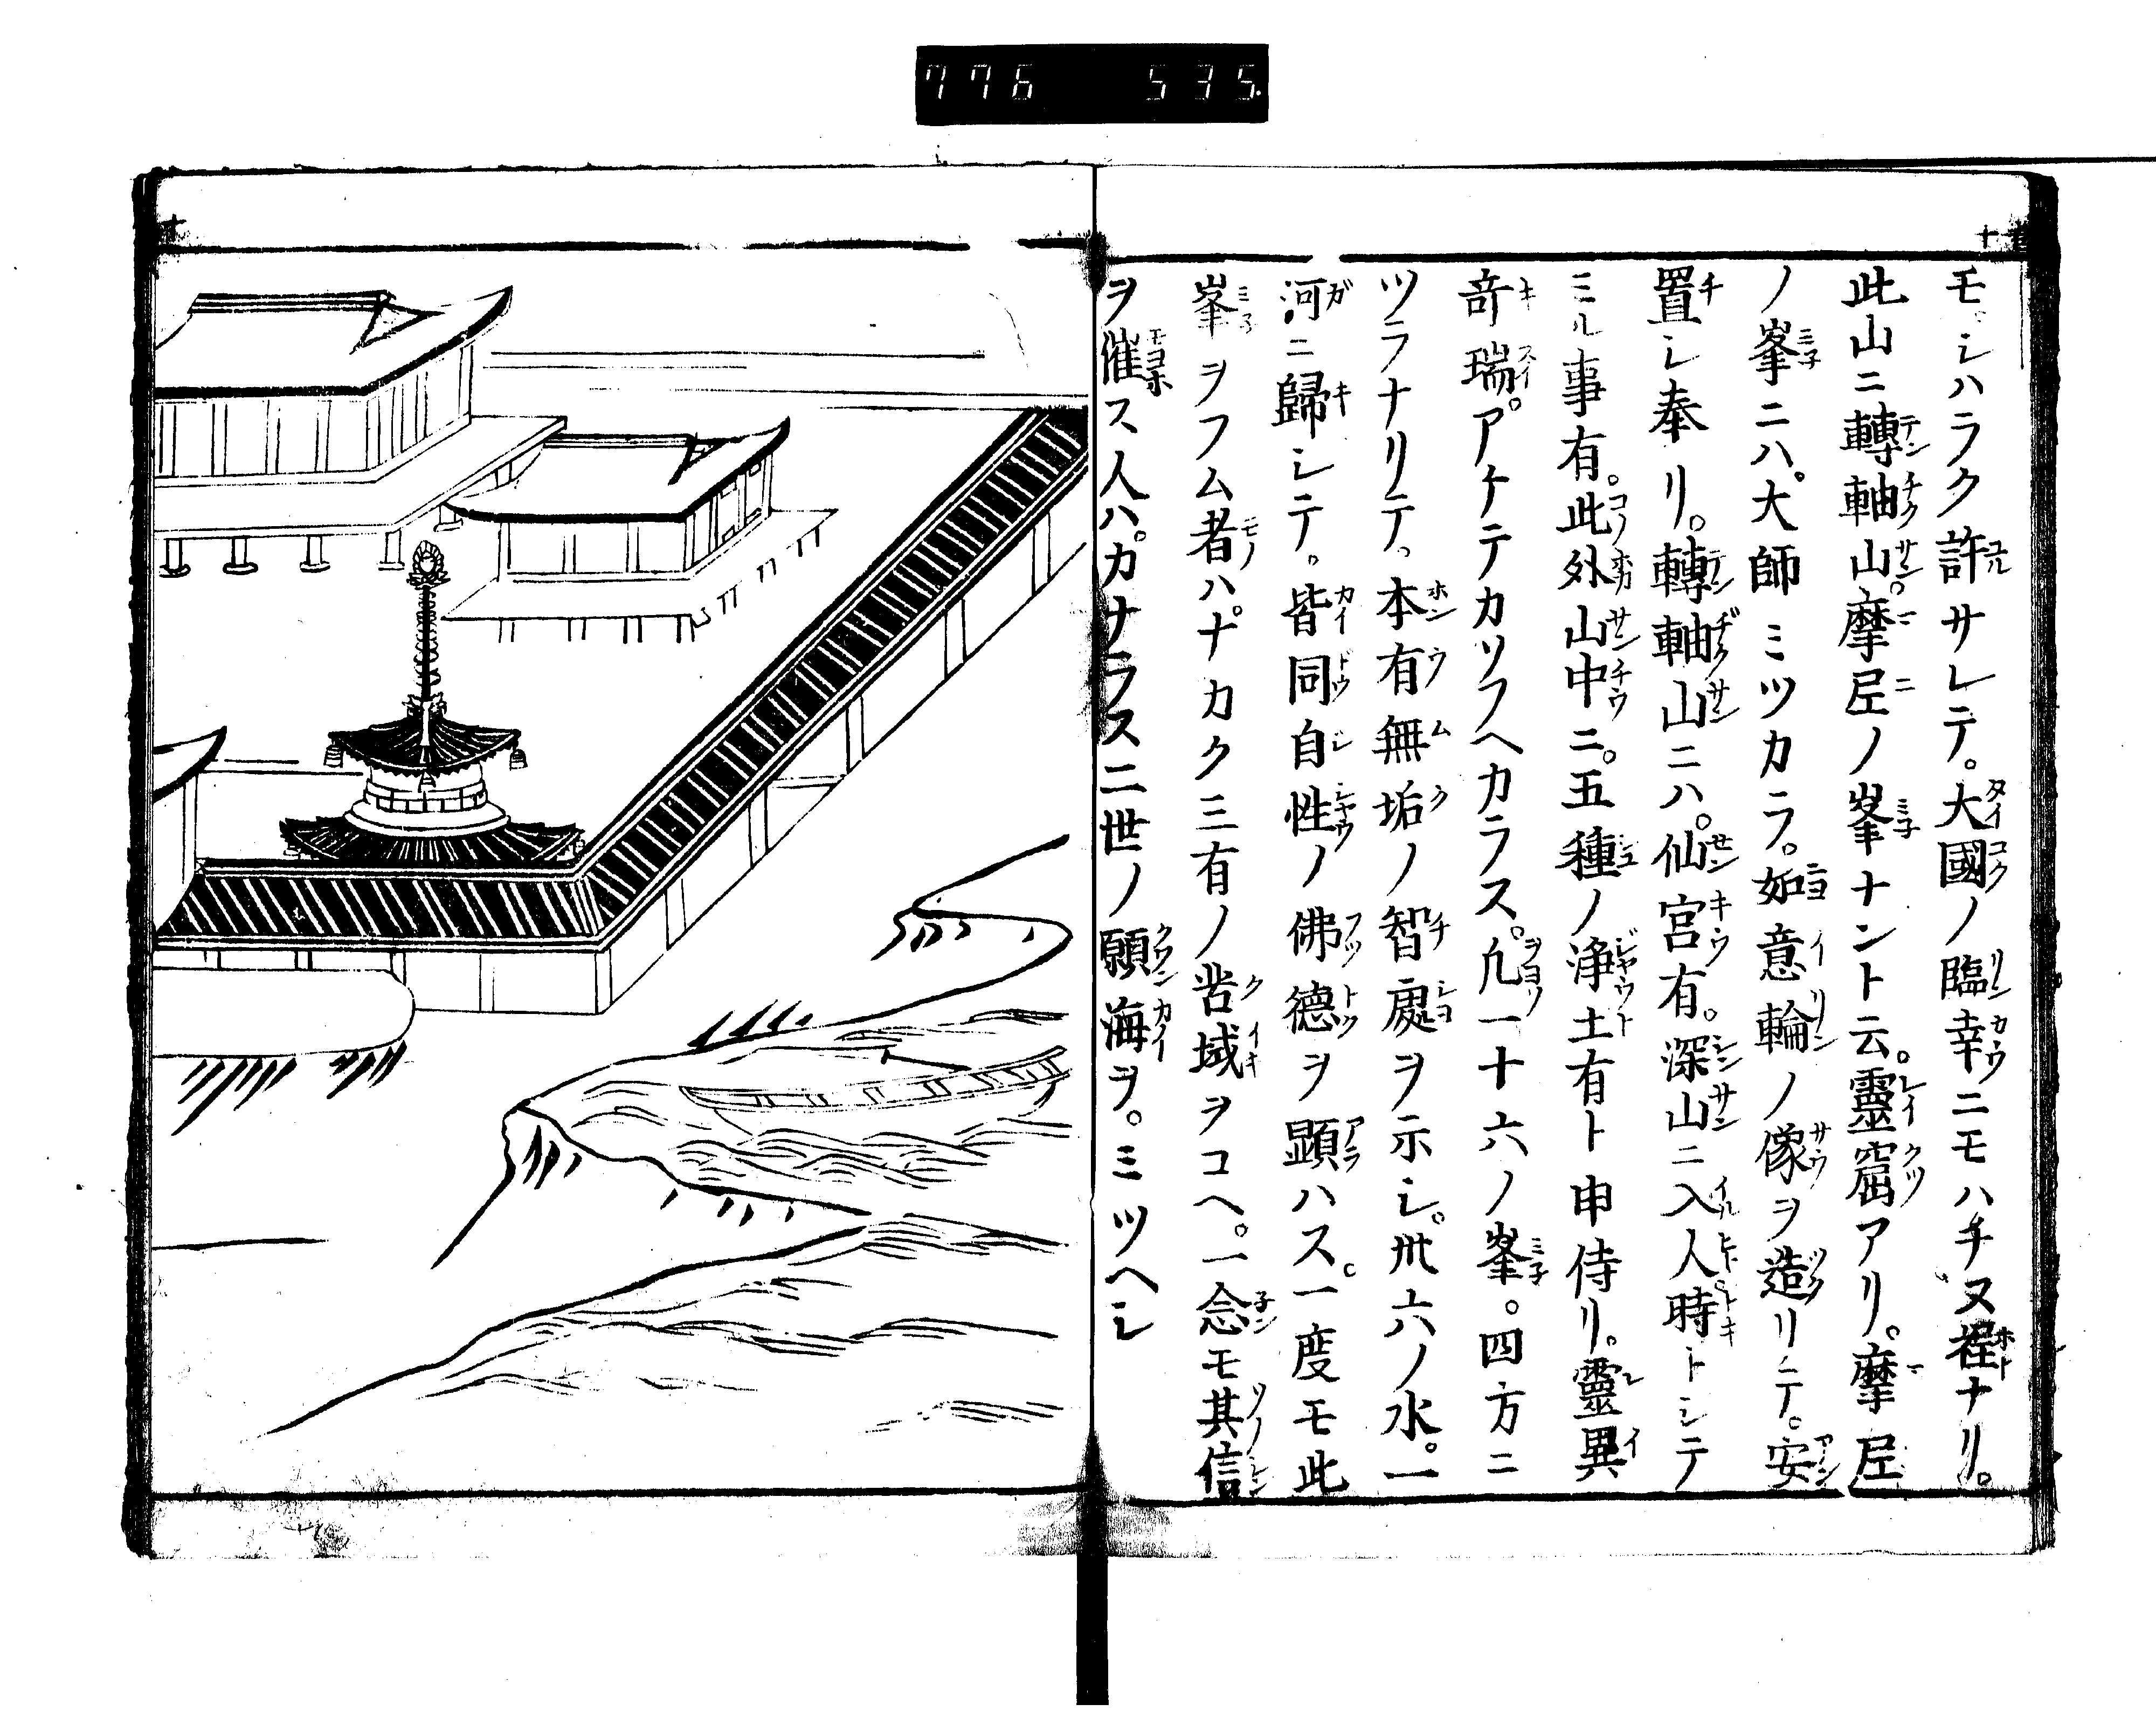 776 535.
モ。シハラク許サレテ。大國ノ臨幸ニモハチヌ程ナリ。
此山ニ轉軸山。摩尼ノ峯ナント云。靈窟アリ。摩尼
ノ峯ニハ。大師ミツカラ。如意輪ノ像ヲ造リテ。安
置シ奉リ。轉軸山ニハ。仙宮有。深山ニ入人時トシテ
ミル事有。此外山中ニ。五種ノ浄土有ト申侍リ。靈異
竒瑞。アケテカソフヘカラス。凢一十六ノ峯。四方ニ
ツラナリテ。本有無垢ノ智處ヲ示シ。卅六ノ水。一
河ニ歸シテ。皆同自性ノ佛德ヲ顕ハス。一度モ此
峯ヲフム者ハ。ナカク三有ノ苦域ヲコヘ。一念モ其信
ヲ催ス人ハ。カナラス二世ノ願海ヲ。ミツヘシ